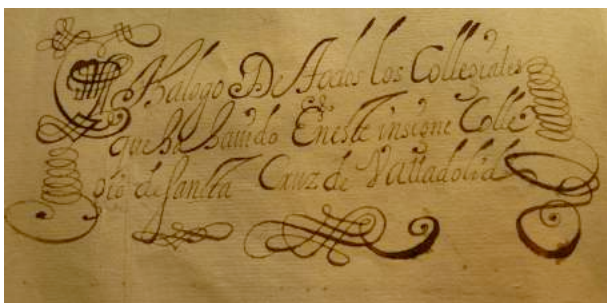 Cathalogo De todos los Collegiales
que ha havido En este insigne Colle
gio de sancta Cruz de Valladolid